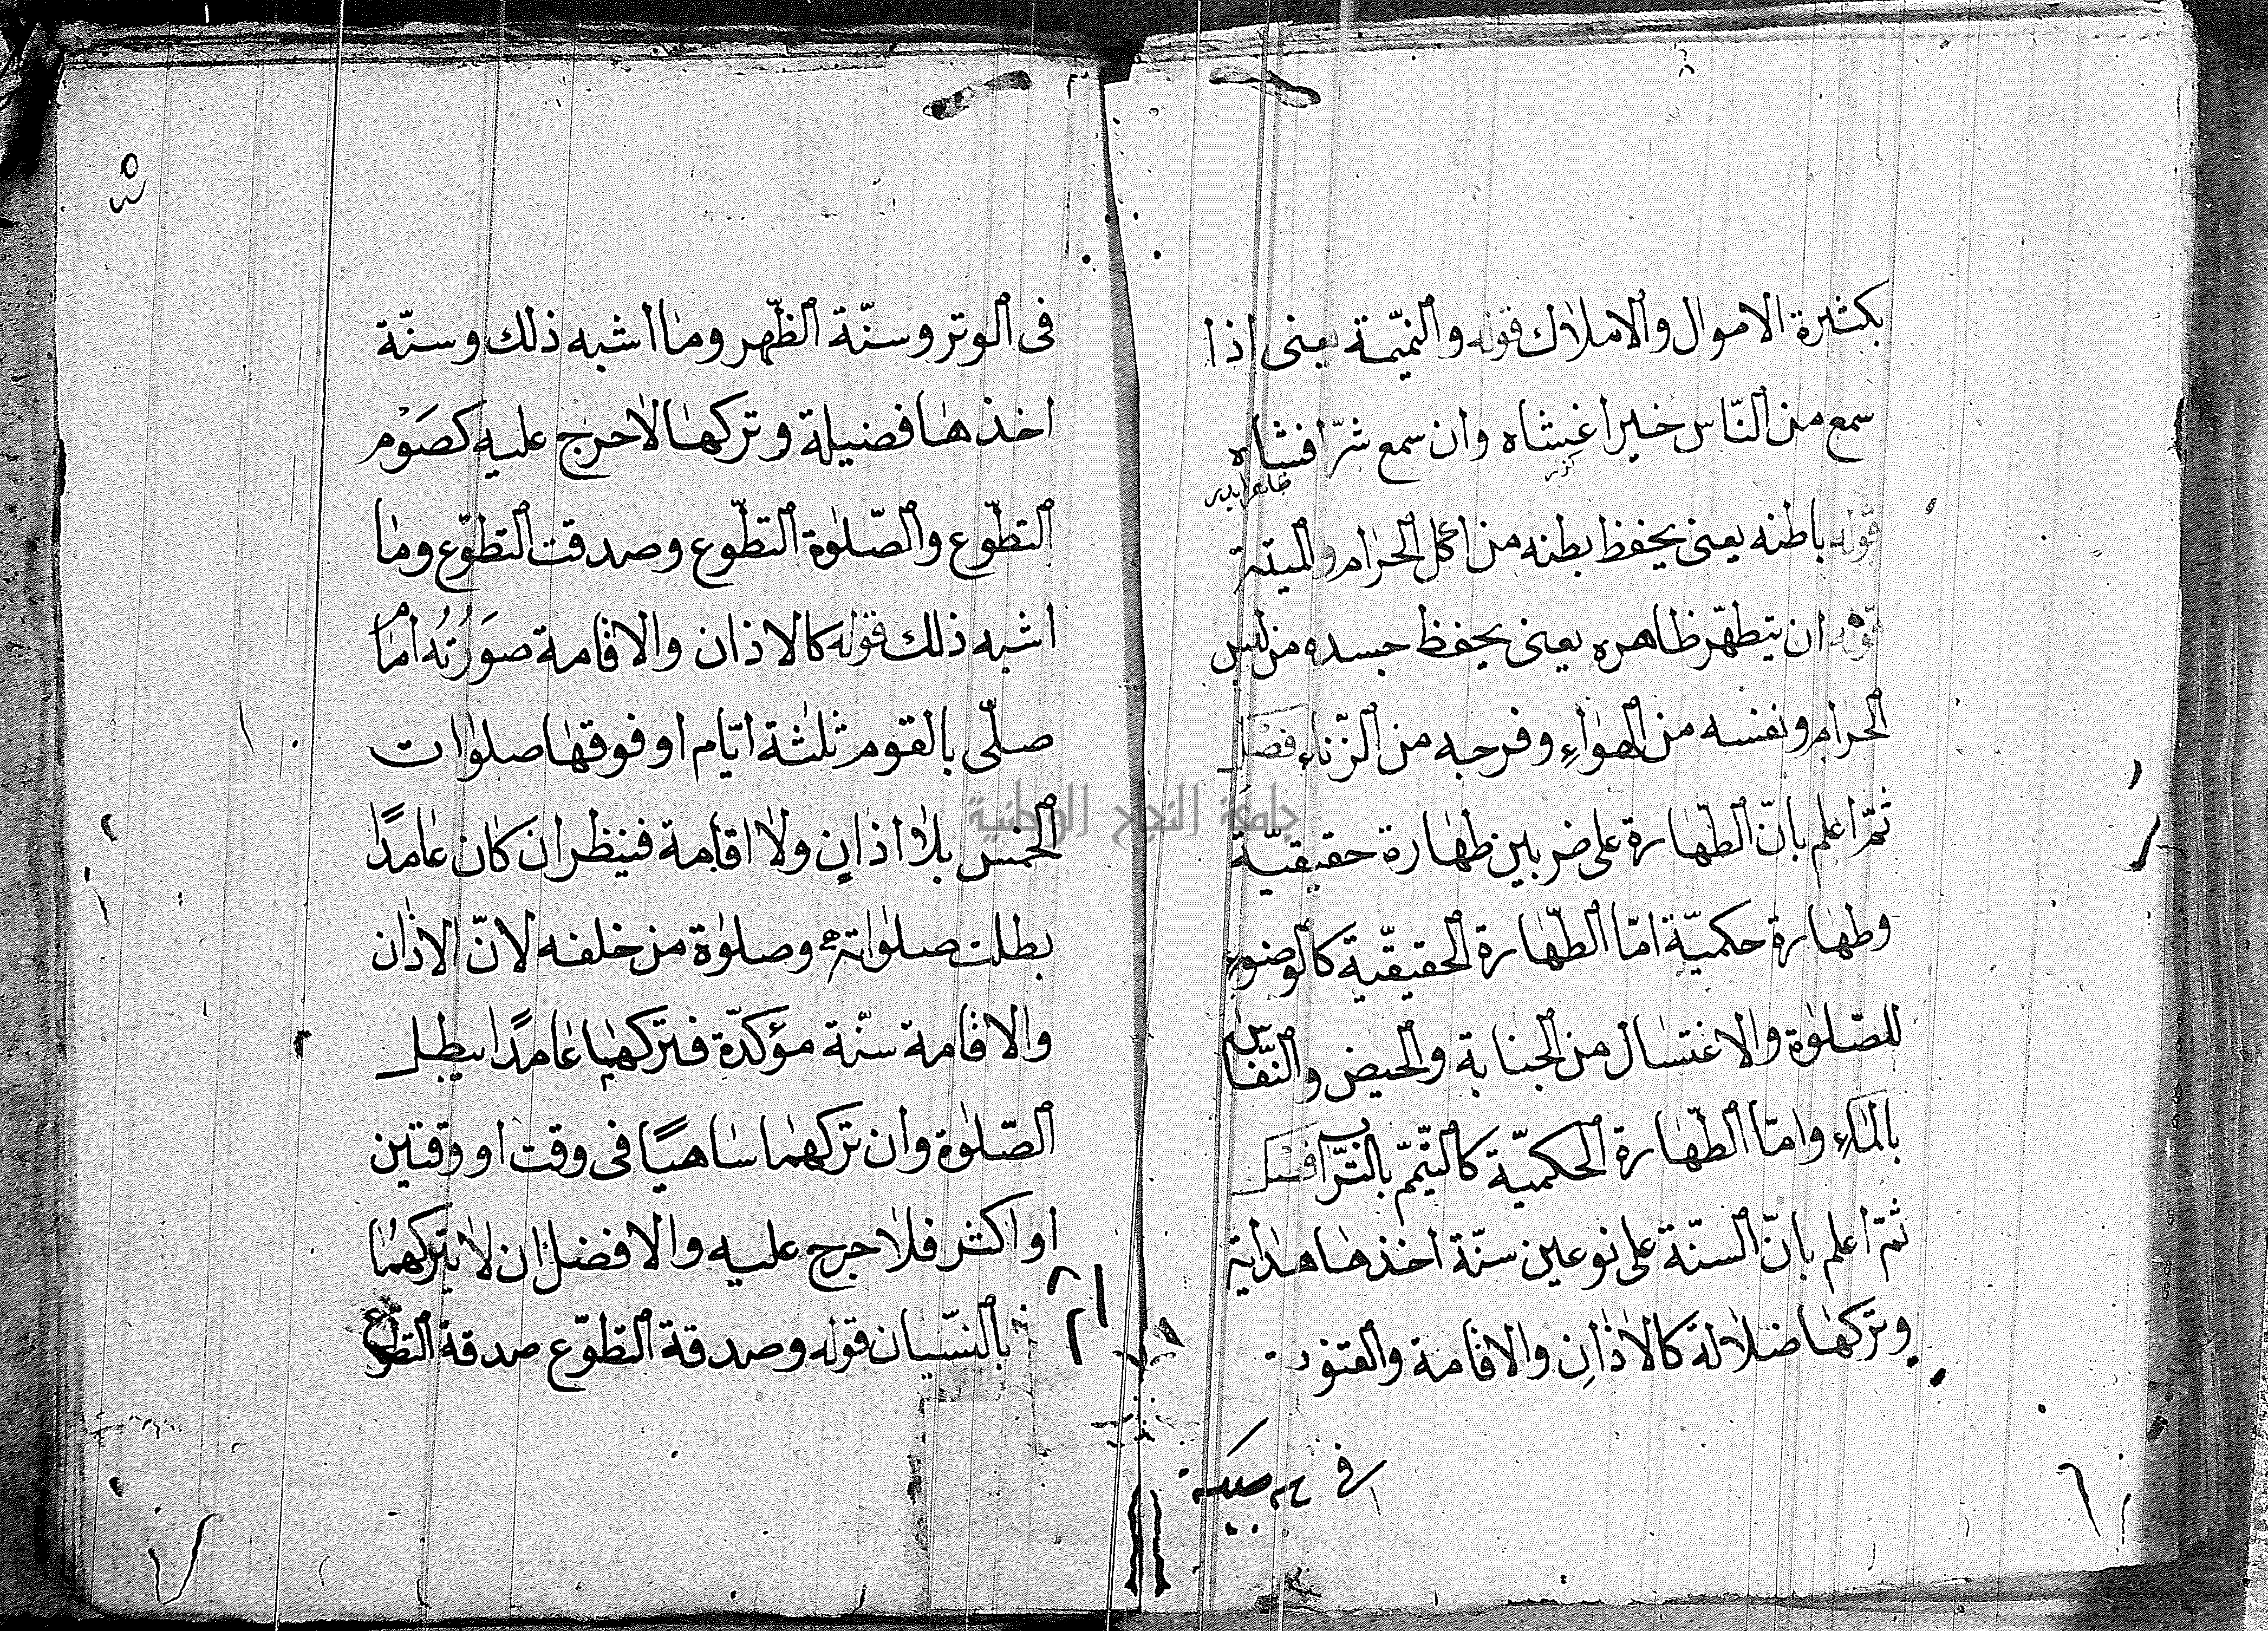 بكثيرة الاموال والاملاك قوله والنميّمة يعنى اذا
سمع من النّاس خيرا غبشاه وان سمع شرّا فشاه
قوله باطنه يعنى يحفظ بطنه من اكل الحرام والميتة
قوله ان يتطهّر ظاهره يعنى يحفظ جسده من لبس
الحرام ونفسه من الهواء وفرجه من الزّناء فصل
ثمّ اعلم بانّ الطّهارة على ضربين طهارة حقيقيّة
وطهارة حكميّة امّا الطّهارة الحقيقيّة كالوضوء
للصّلوة والاغتسال من الجنابة والحيض والنّفاس
بالماء وامّا الطّهارة الحكميّة كالتّيمّم بالتّراب فصل
ثمّ اعلم بانّ السنّة على نوعين سنّة اخذها هداية
وتركها ضلالة كالاذان والاقامة والقنوت
فى
فى الوتر وسنّة الظّهر وما اشبه ذلك وسنّة
اخذها فضيلة وتركها لا حرج عليه كصَوْم
التطّوّع والصّلوة التطّوع وصدقت التطوّع وما
اشبه ذلك قوله كالاذان والاقامة صوَرتُه امام
صلّى بالقوم ثلثة ايّام او فوقها صلوات
الخمس بلا اذانٍ ولا اقامة فينظر ان كان عامدًا
بطلت صلواته وصلوة من خلفه لانّ الاذان
والاقامة سنّة مؤكدّة فتركهما عامدًا يبطل
الصّلوة وان تركهما ساهيًا فى وقت او وقتين
او اكثر فلا حرج عليه والافضل ان لا يتركهما
بالنسّيان قوله وصدقة التطوّع صدقة التطوع
جامعة النجاح الوطنية